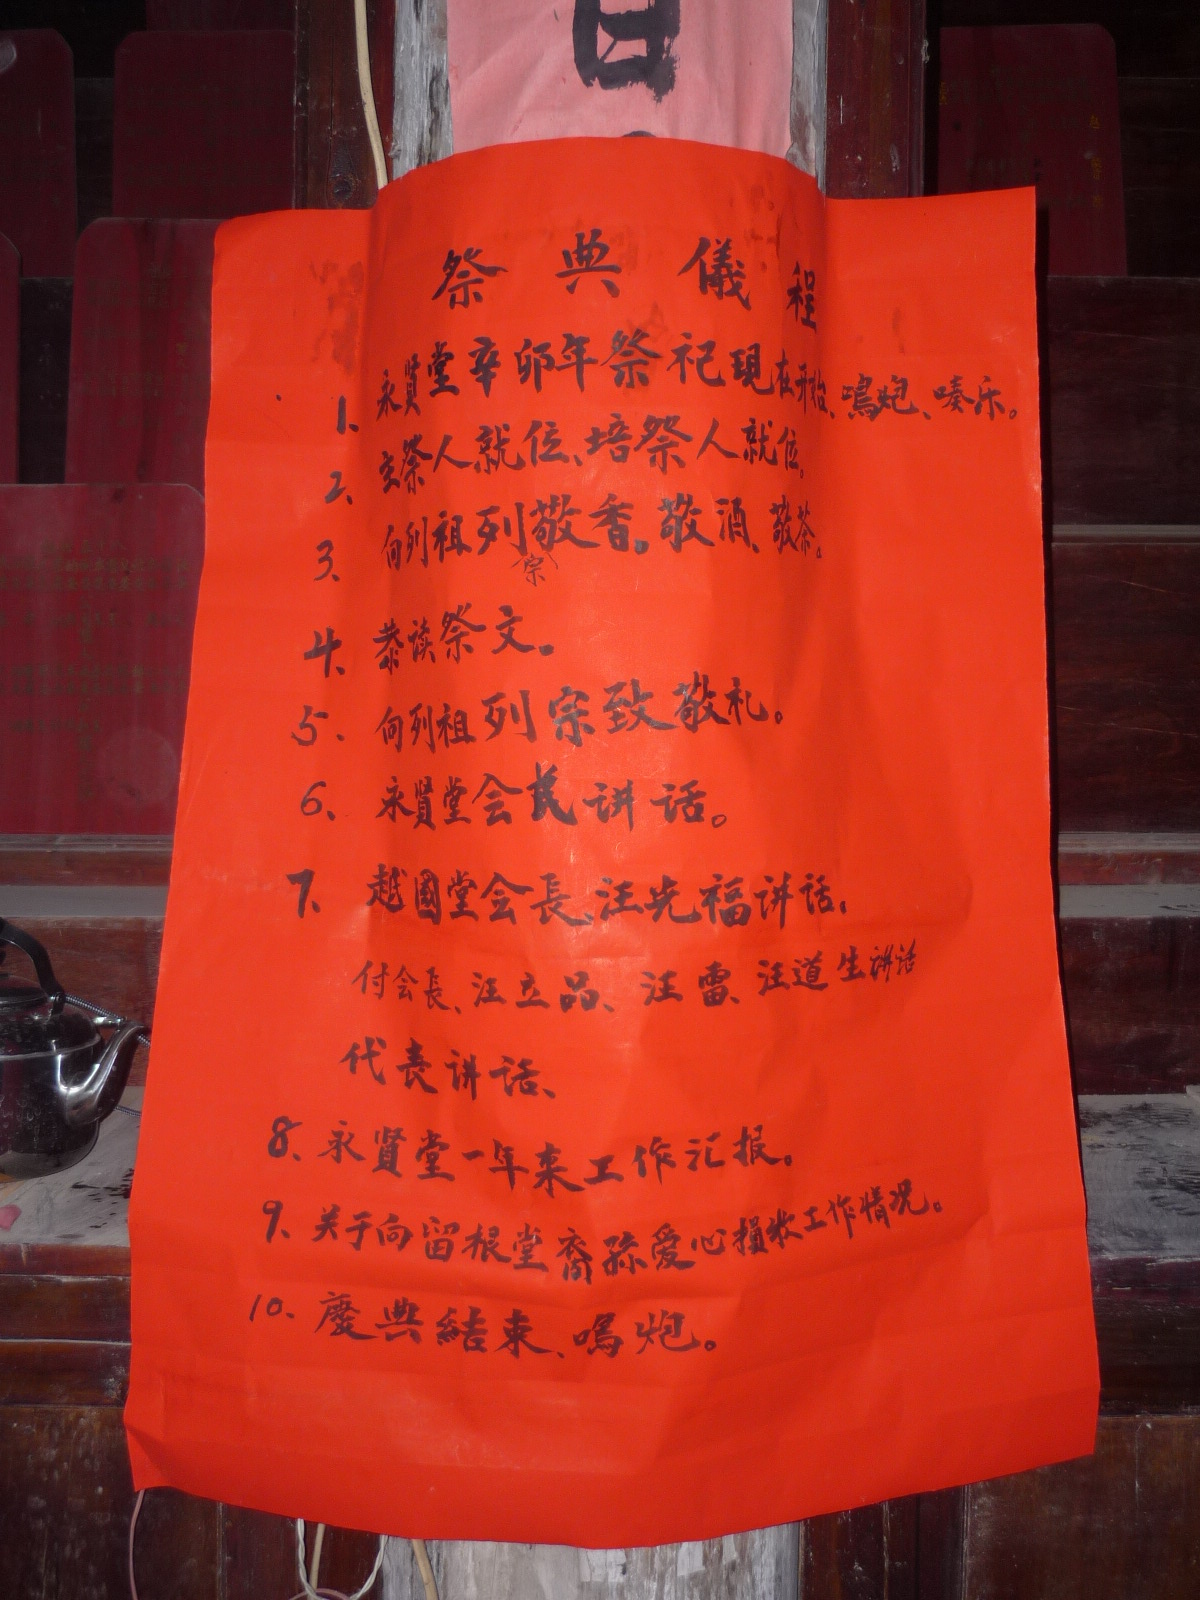 日
祭典儀程
1、永賢堂辛卯年祭祀現在开始、鳴炮、嗪乐。
2、主祭人就位、培祭人就位。
3、向列祖列敬香。敬酒、敬茶。
宗
4、恭读祭文。
5．向列祖列宗致敬札。
6、永賢堂会長讲话。
7、越國堂会長、汪先福讲话．
付会長、汪立品、汪雷、汪道生讲话
代表讲话、
8、永賢堂一年来工作汇报。
9、关于向留根堂裔孫爱心損收工作情况。
10、慶典結束、鳴炮。